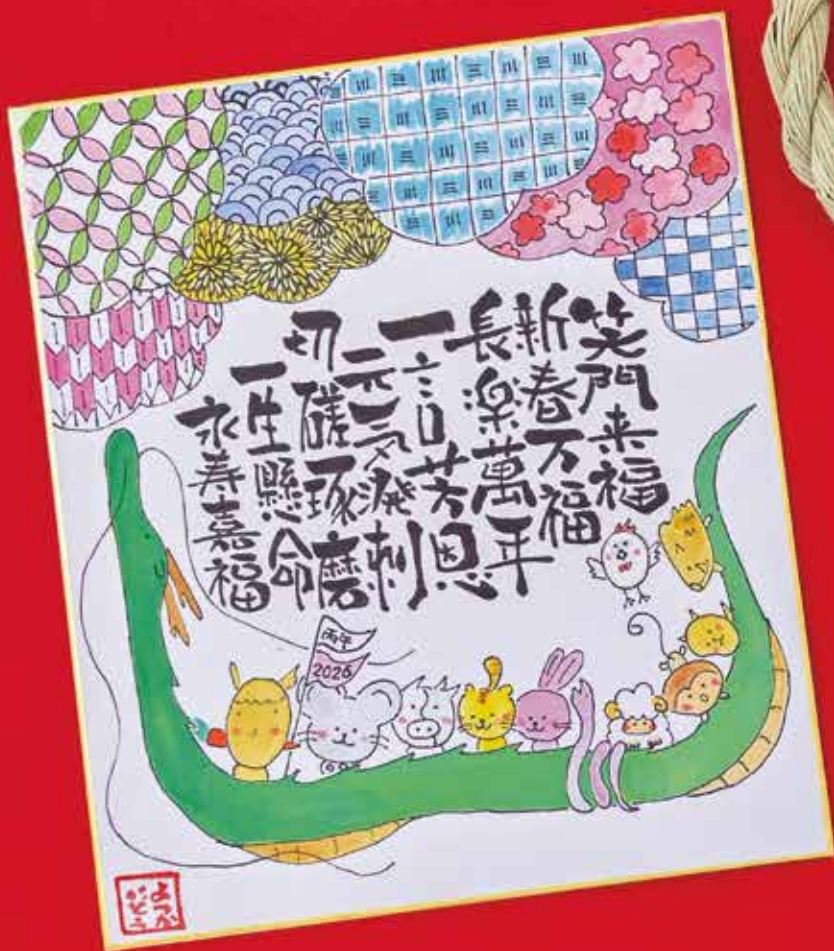 笑門来福
新春万福
長楽萬年
一言芳恩
元気溌剌
切磋琢磨
一生懸命
永寿嘉福
丙午
2026